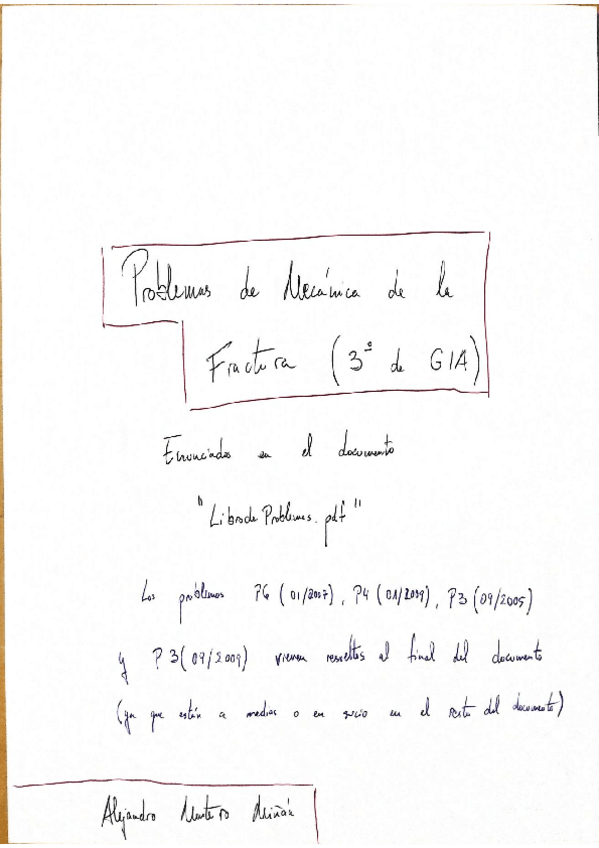 Problemas de Mecánica de la
Fractura (3º de GIA)
Enunciados en el documento
"LibrodeProblemas.pdf"
Los problemas P6 (01/2007), P4 (01/2009), P3 (09/2005)
y P3 (09/2009) vienen resueltos al final del documento
(ya que están a medias o en sucio en el resto del documento)
Alejandro Montero Miñán